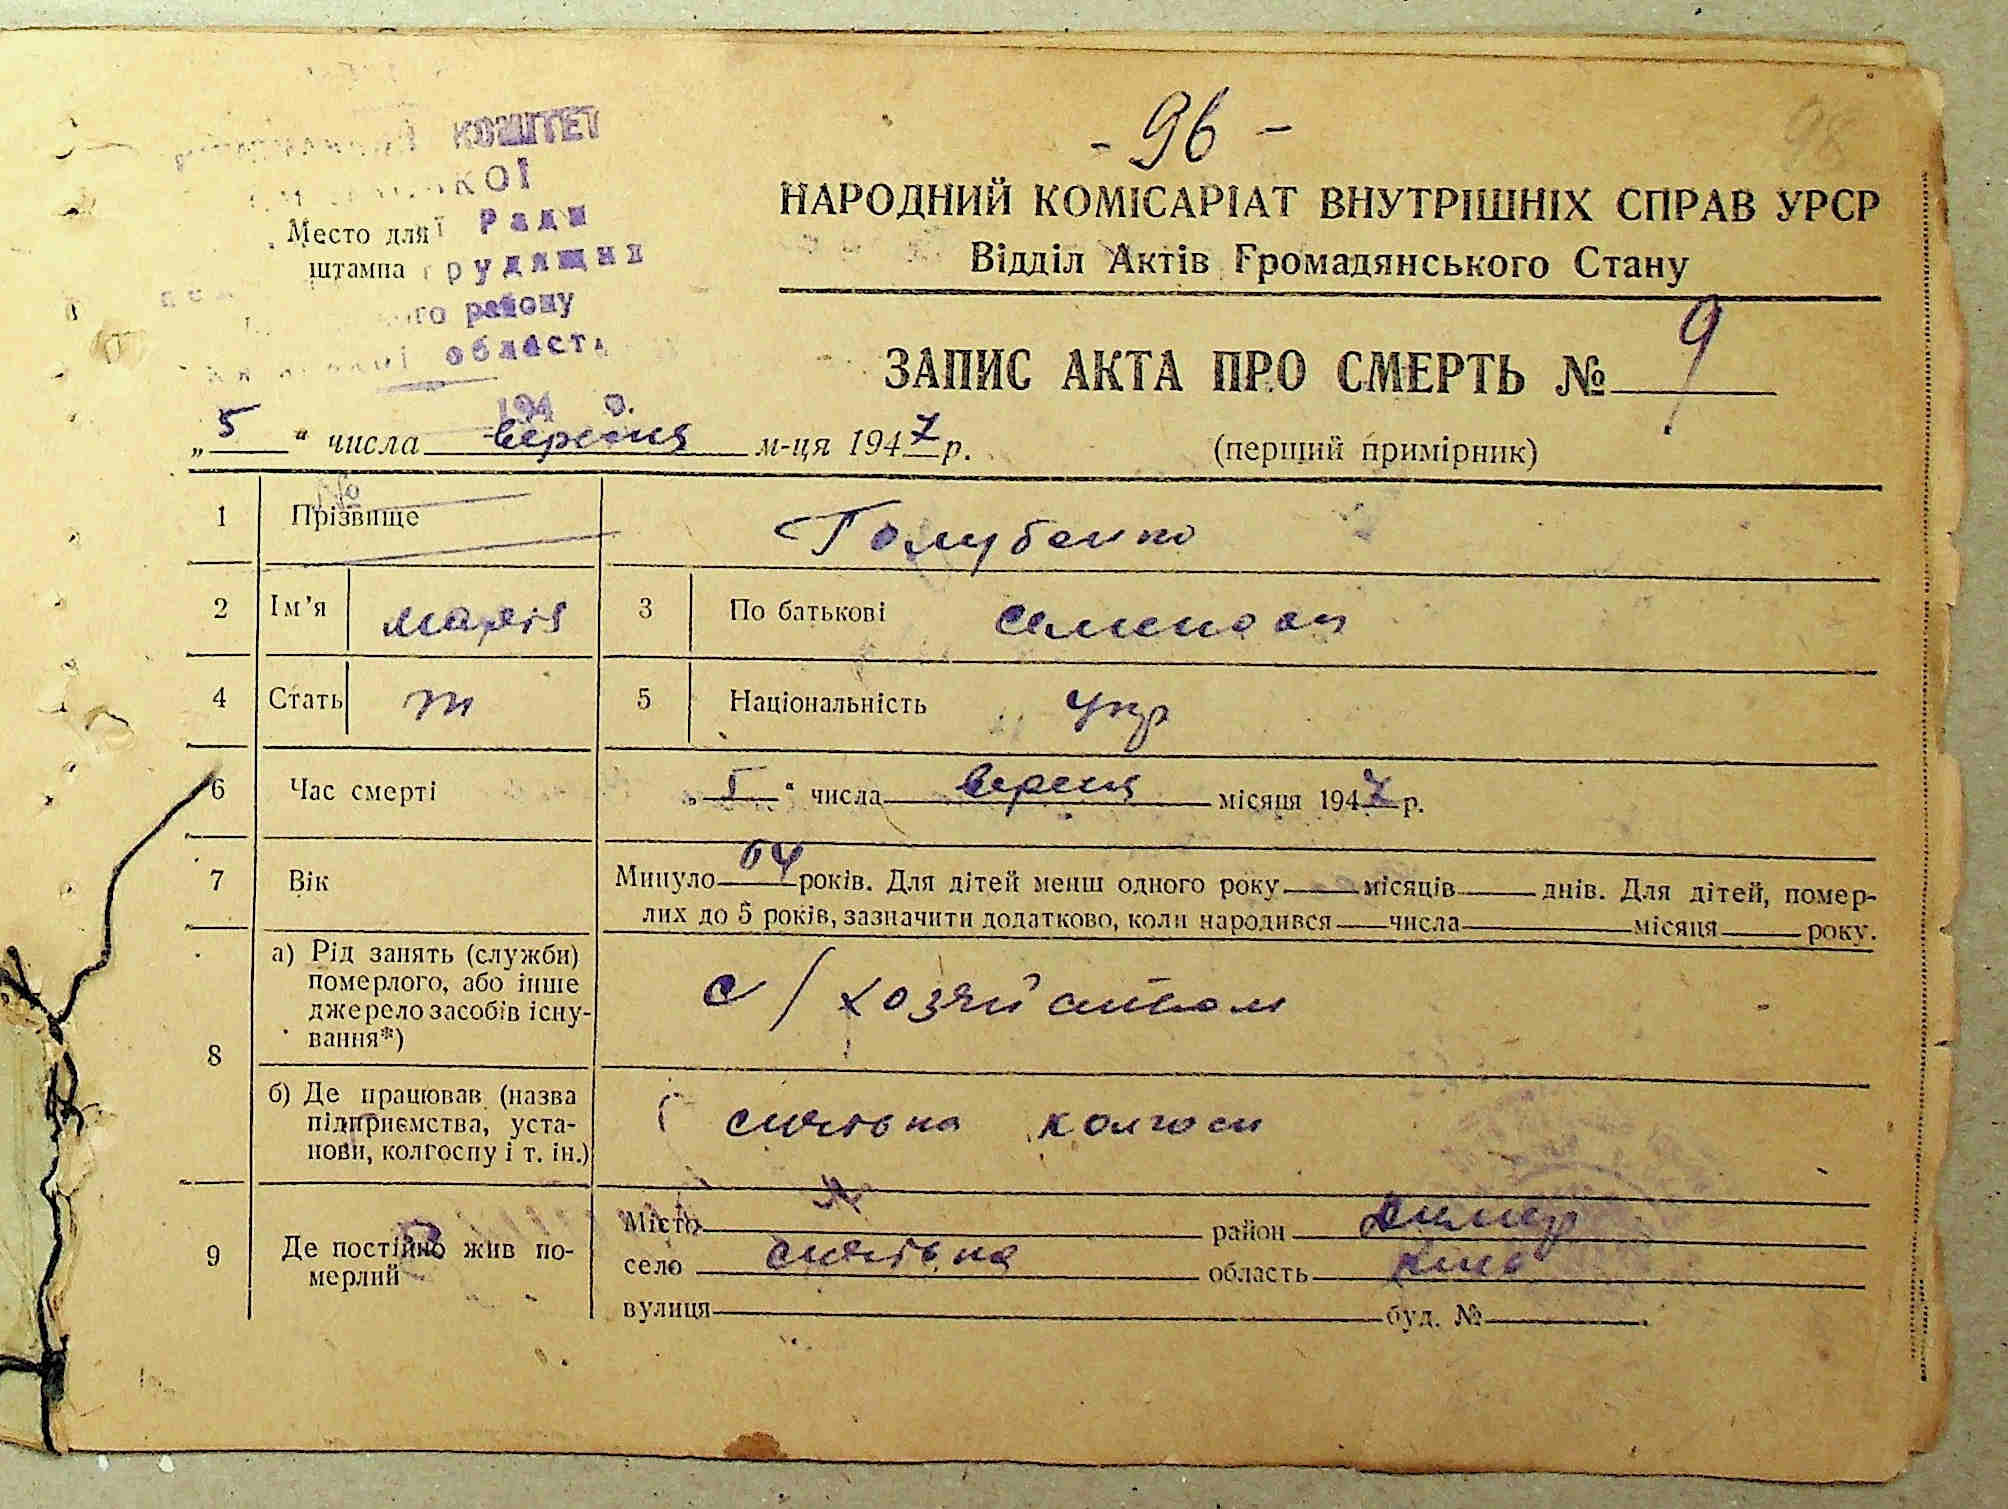 - 96 -
98
КОМІТЕТ
КОЇ
Ради
трудящих
ого району
області
194 р.
Место для
штампа
НАРОДНИЙ КОМІСАРІАТ ВНУТРІШНІХ СПРАВ УРСР
Відділ Актів Громадянського Стану
ЗАПИС АКТА ПРО СМЕРТЬ № 9
„5“ числа вересня м-ця 1947 р.
(перщий примірник)
№
1 Прізвище Голубенко
2 Ім’я Марія 3 По батькові Семенов
4 Стать ж 5 Національність Укр
6 Час смерті „5“ числа вересня місяця 1947 р.
7 Вік Минуло 64 років. Для дітей менш одного року місяців днів. Для дітей, помер-
лих до 5 років, зазначити додатково, коли народився числа місяця року.
8 а) Рід занять (служби)
померлого, або інше
джерело засобів існу-
вання*)
с/хозяйством
б) Де працював (назва
підприємства, уста-
нови, колгоспу і т. ін.)
колгосп
9 Де постійно жив по-
мерлий
Місто район Димер
село область Київ
вулиця буд. №